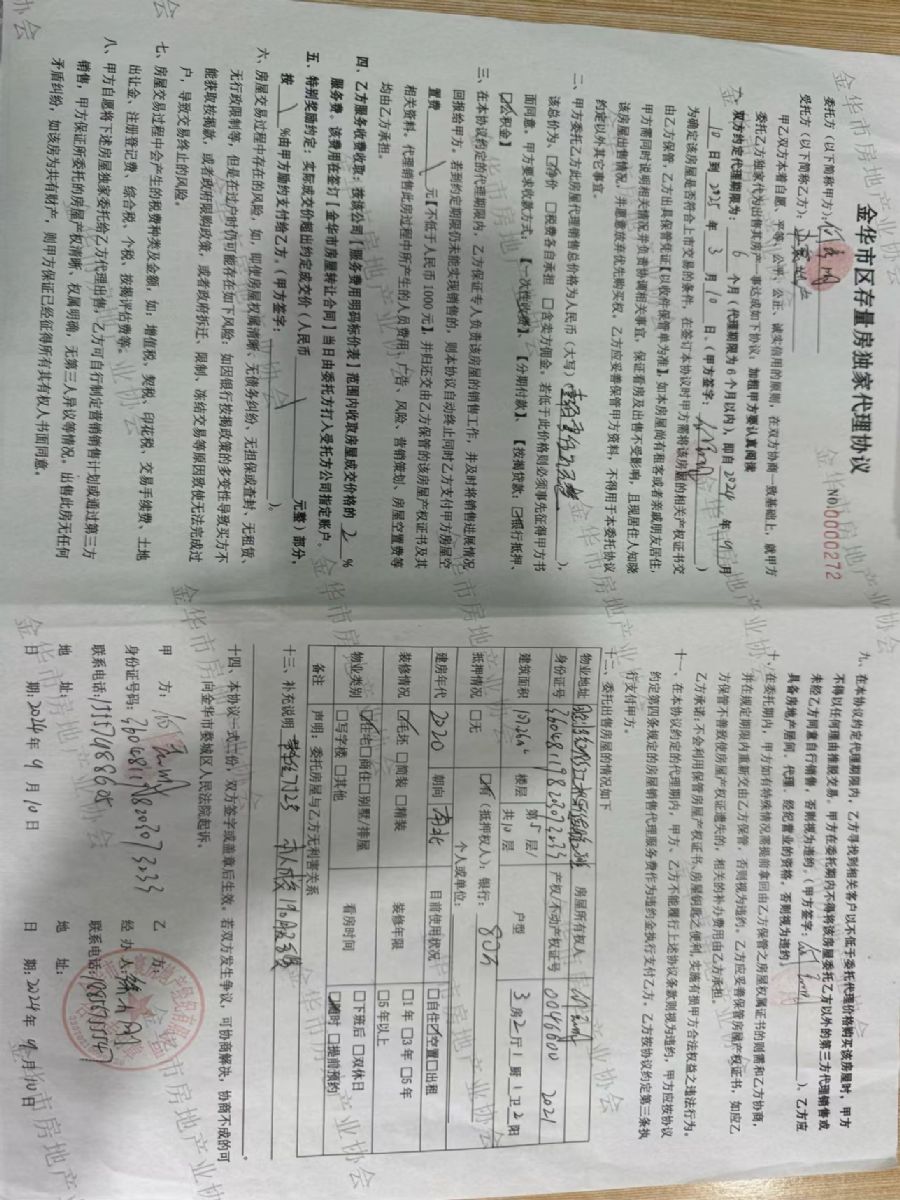 金华市区存量房独家代理协议
NO 0000272
委托方（以下简称甲方）：
受托方（以下简称乙方）：
甲乙双方本着自愿、平等、公平、公正、诚实信用的原则，在双方协商一致基础上，就甲方
委托乙方独家代为出售其房产一事达成如下协议，加粗甲方要认真阅读
一、双方约定代理期限为： 6 个月（代理期限为6个月以内），即自 2024 年 9 月
10 日到 2025 年 3 月 10 日。（甲方签字： ）
为确定该房屋是否符合上市交易的条件，在签订本协议时甲方需将该房屋的相关产权证书交
由乙方保管，乙方出具保管凭证【以收件保管单为准】，如本房屋尚有租客或者亲戚朋友居住，
甲方需同时说明相关情况并负责协调相关事宜，保证看房及出售不受影响，且现居住人知晓
该房屋出售情况，并愿意放弃优先购买权。乙方应妥善保管甲方资料，不得用于本委托协议
约定以外其它事宜。
二、甲方委托乙方此房屋代理销售总价格为人民币（大写）（ ），
该总价为，☑净价 □税费各自承担 □含卖方佣金，若低于此价格则必须事先征得甲方书
面同意。甲方要求收款方式：【一次性收楼】 【分期付款】、【按揭贷款：☑银行抵押、
☑公积金】
三、在本协议约定的代理期限内，乙方保证专人负责该房屋的销售工作，并及时将销售进展情况
回报给甲方。若到约定期限仍未能实现销售的，则本协议自动终止同时乙方支付甲方房屋空
置费 \ 元【不低于人民币1000元】，并归还交由乙方保管的该房屋产权证书及其
相关资料。代理销售此房过程中所产生的人员费用、广告、风险、营销策划、房屋空置费等
均由乙方承担。
四、乙方服务收费收取：按该公司【服务费用明码标价表】范围内收取房屋成交价格的 2 %
服务费。该费用在签订【金华市房屋转让合同】当日由委托方打入受托方公司指定账户。
五、特别奖励约定：实际成交价超出约定成交价（人民币 \ 元整）部分，
按 \ %由甲方励约支付给乙方。（甲方签字： \ ）。
六、房屋交易过程中存在的风险，如，即使房屋权属清晰、无债务纠纷，无担保或查封，无租赁、
无行政限制等，但是在过户时仍可能存在如下风险：如因银行按揭政策的多变性导致买方不
能获取按揭款，或者政府限购政策，或者政府拆迁、限制、冻结交易等原因致使无法完成过
户，导致交易终止的风险。
七、房屋交易过程中会产生的税费种类及金额，如：增值税、契税、印花税、交易手续费、土地
出让金、注册登记费、综合税、个税、按揭评估费等。
八、甲方自愿将下述房屋独家委托给乙方代理出售，乙方可自行制定营销销售计划或通过第三方
销售，甲方保证所委托的房屋产权清晰、权属明确，无第三人异议等情况。出售此房无任何
矛盾纠纷，如该房为共有财产，则甲方保证已经征得所有其有权人书面同意。
九、在本协议约定代理期限内，乙方寻找到相关客户以不低于委托代理价格购买该房屋时，甲方
不得以任何理由推脱交易。甲方在委托期内不得将该房屋委托乙方以外的第三方代理销售或
未经乙方同意自行销售，否则视为违约。（甲方签字： ），乙方应
具备房地产居间、代理、经纪营业的资格，否则视为违约
十、在委托期内，甲方如有特殊情况需提前拿回由乙方保管之房屋权属证书的则需和乙方协商，
并在规定期限内重新交由乙方保管，否则视为违约。乙方应妥善保管房屋产权证书，如应乙
方保管不善致使房屋产权证遗失的，相关的补办费用由乙方承担。
乙方承诺：不会利用保管房屋产权证书、房屋钥匙之便利，实施有损甲方合法权益之违法行为。
十一、在本协议约定的代理期内，甲方、乙方不能履行上述协议条款则视为违约，甲方应按协议
约定第四条规定的房屋销售代理服务费作为违约金执行支付乙方，乙方按协议约定第三条执
行支付甲方。
十二、委托出售房屋的情况如下
物业地址 房屋所有权人：
身份证号 产权/不动产权证号 0046600 2021
建筑面积 楼层 第5层/ 共10层 户型 3房2厅1厨1卫2阳
抵押情况 □无 ☑有（抵押权人），银行： 个人或单位：
建房年代 2020 朝向 南北 目前使用状况 □自住☑空置□出租
装修情况 ☑毛坯 □简装 □精装 装修年限 □1年 □3年 □5年 □5年以上
物业类别 ☑住宅□商住□别墅/排屋 □写字楼 □其他 看房时间 □下班后 □双休日 ☑随时 □提前预约
备注 声明：委托房屋与乙方无利害关系
十三、补充说明
十四、本协议一式二份，双方签字或盖章后生效。若双方发生争议，可协商解决，协商不成的可
向金华市婺城区人民法院起诉。
甲 方：
身份证号码：
联系电话：
地 址：
日 期：2024年9月10日
乙 方：
经 办 人：
联系电话：
地 址：
日 期：2024年9月10日
金华市房地产业协会